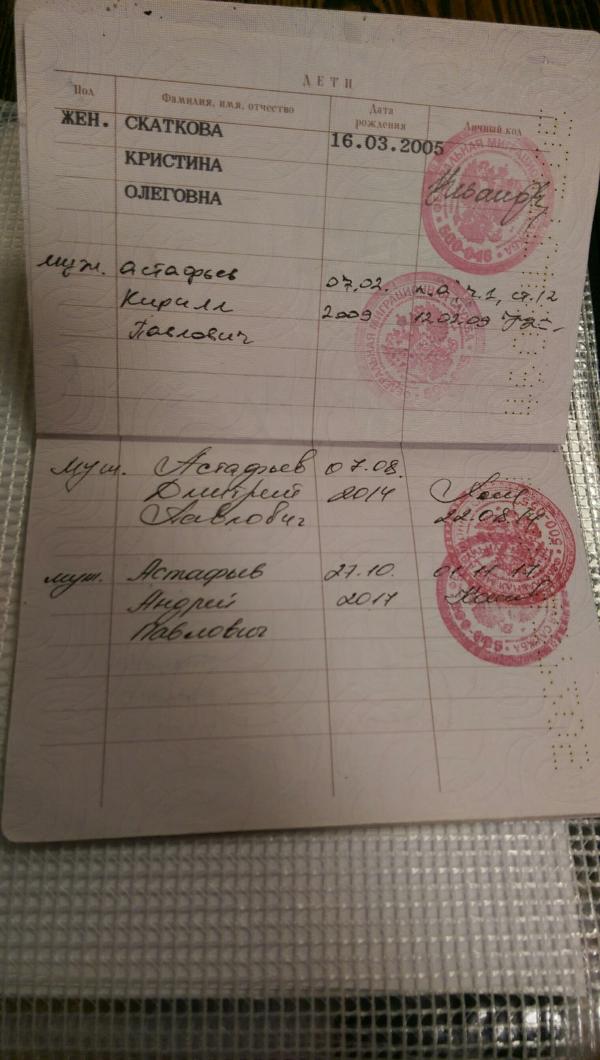 ДЕТИ
Пол Фамилия, имя, отчество Дата рождения Личный код
ЖЕН. СКАТКОВА 16.03.2005
КРИСТИНА
ОЛЕГОВНА
500-046
муж. Астафьев 07.02. п. "а", ч.1, ст.12
Кирилл 2009 12.02.09
Павлович
муж. Астафьев 07.08.
Дмитрий 2014
Павлович 22.08.14
муж. Астафьев 27.10. 01.11.17
Андрей 2017
Павлович